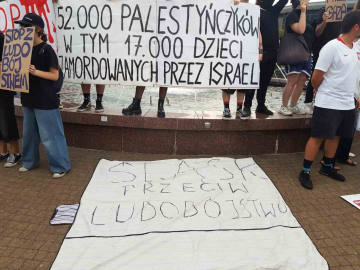 52.000 PALESTYŃCZYKÓW
W TYM 17.000 DZIECI
ZAMORDOWANYCH PRZEZ IZRAEL
STOP Z
LUDO
BÓJ
STWEM
ŚLĄSK
PRZECIW
LUDOBÓJSTWU